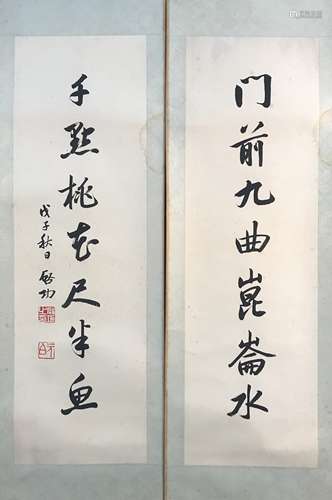 門前九曲崑崙水
千點桃花尺半魚
戊子秋日 啟功